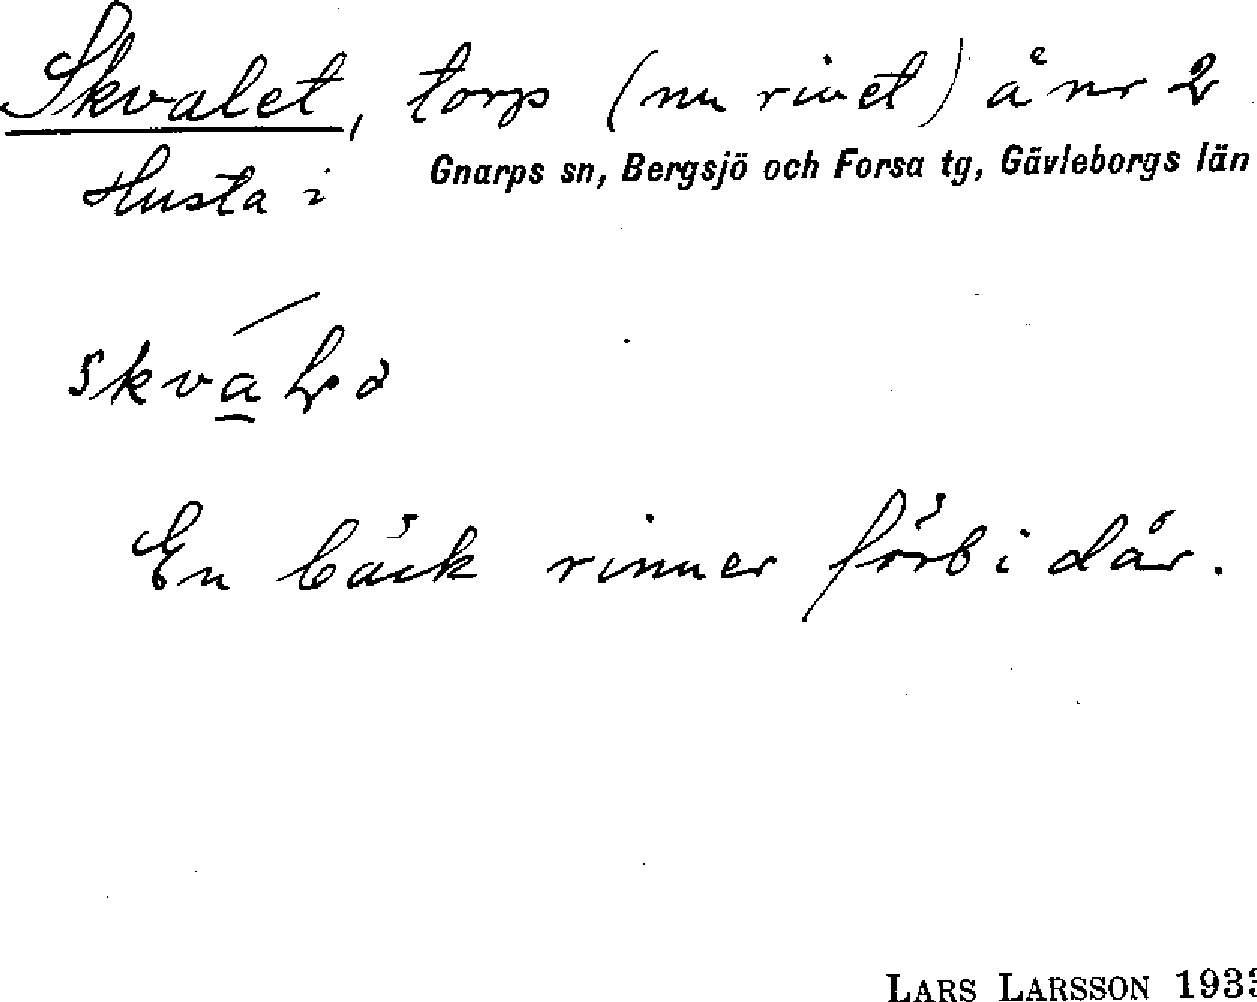 Skvalet, torp (nu rivet) å nr 2
Husta i Gnarps sn, Bergsjö och Forsa tg, Gävleborgs län
En bäck rinner förbi där.
LARS LARSSON